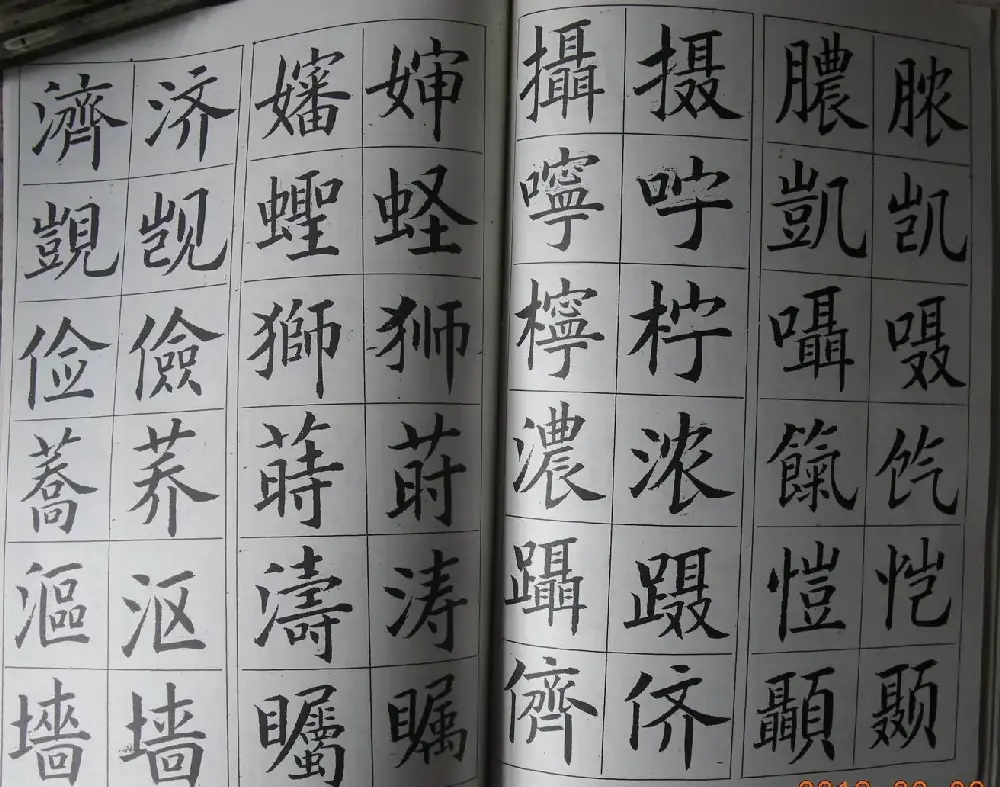 濟 济 嬸 婶
覬 觊 蟶 蛏
俭 儉 獅 狮
蕎 荞 蒔 莳
漚 沤 濤 涛
墻 墙 矚 瞩
攝 摄 膿 脓
嚀 咛 凱 凯
檸 柠 囁 嗫
濃 浓 餼 饩
躡 蹑 愷 恺
儕 侪 顳 颞